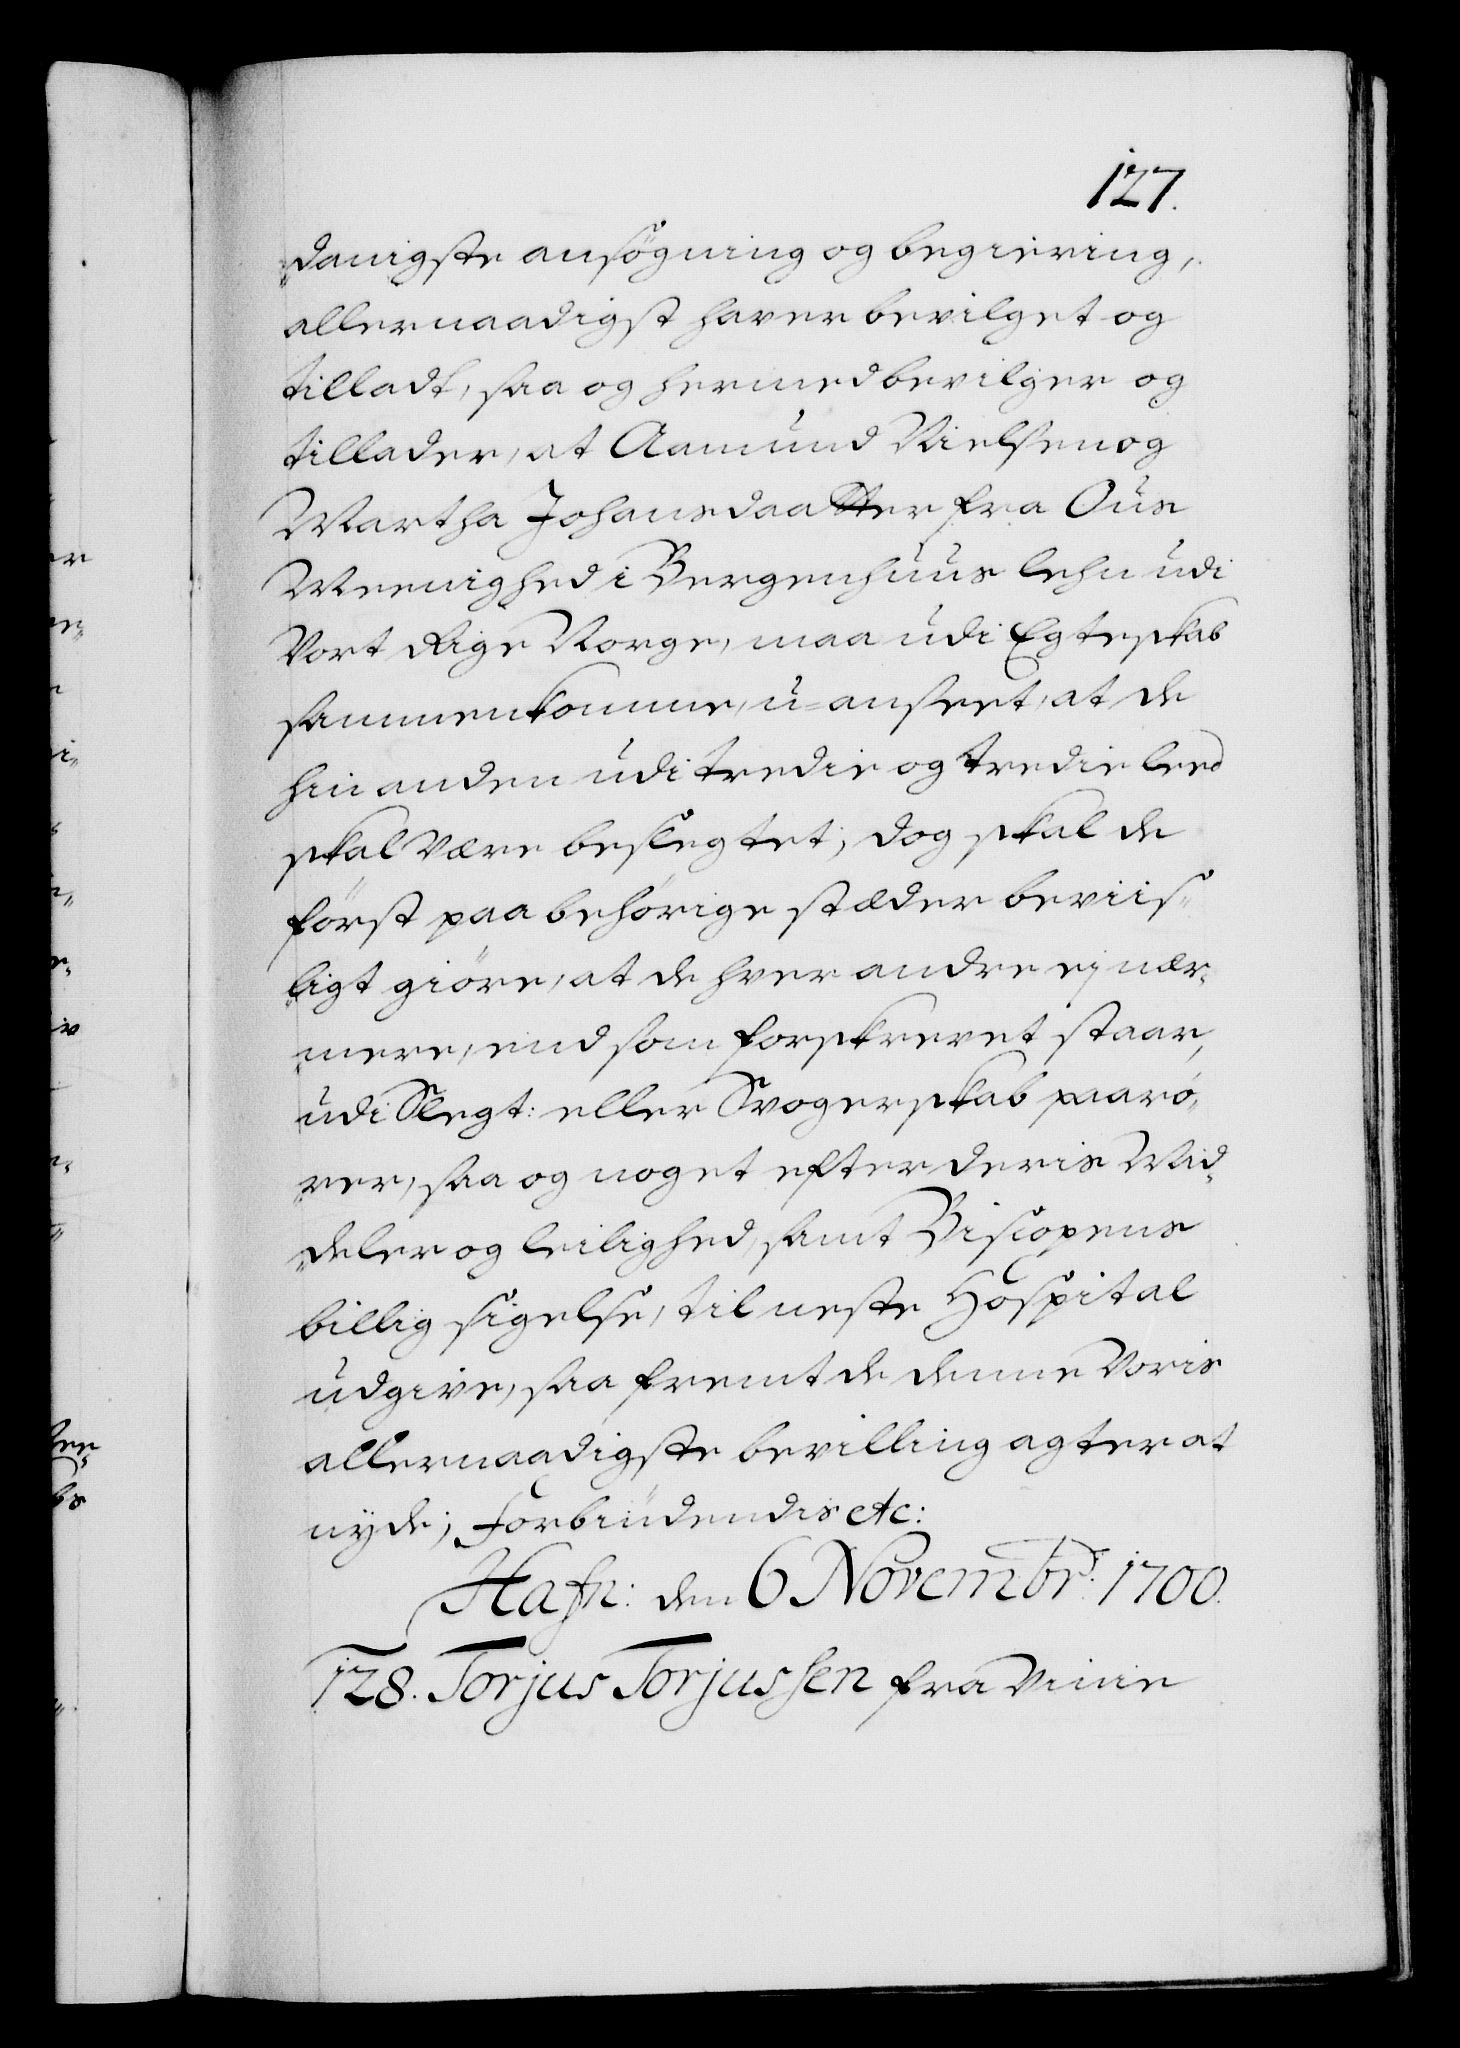 127.
„danigste ansögning og begiering,
allernaadigst haver bevilget og
tilladt, saa og hermed bevilger og
tillader, at Aamund Nielsen og
Martha Johansdaatter fra Ous
Meenighed i Bergenhuus lehn udi
Vort Rige Norge, maa udi Egteskab
sammenkomme, u-anseet, at de
hin anden udi tredie og tredie leed
skal være beslegtet; dog skal de
först paa behörige stæder beviis„
„ligt giöre, at de hver andre ej nær„
„mere, end som forskrevet staar,
udi Slegt: eller Svogerskab paarö„
„rer, saa og noget efter deris Mid„
„deler og leilighed, samt Biscopens
billig sigelse, til neste Hospital
udgive, saa fremt de denne Voris
allernaadigste bevilling agter at
nyde; Forbiudendis etc:
Hafn: den 6 Novembr: 1700.
128. Torjus Torjussen fra Vinie